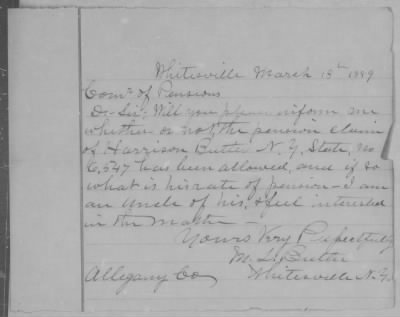 Whitesville March 13th 1889
Comr of Pensions
Dr Sir; Will you please inform me
whether or not, the pension claim
of Harrison Butler N.Y. State, No
6,547 has been allowed, and if so
what is his rate of pension - I am
an Uncle of his, & feel interested
in the matter
Yours Very Respectfully
M. L. Butler
Allegany Co Whitesville N.Y.